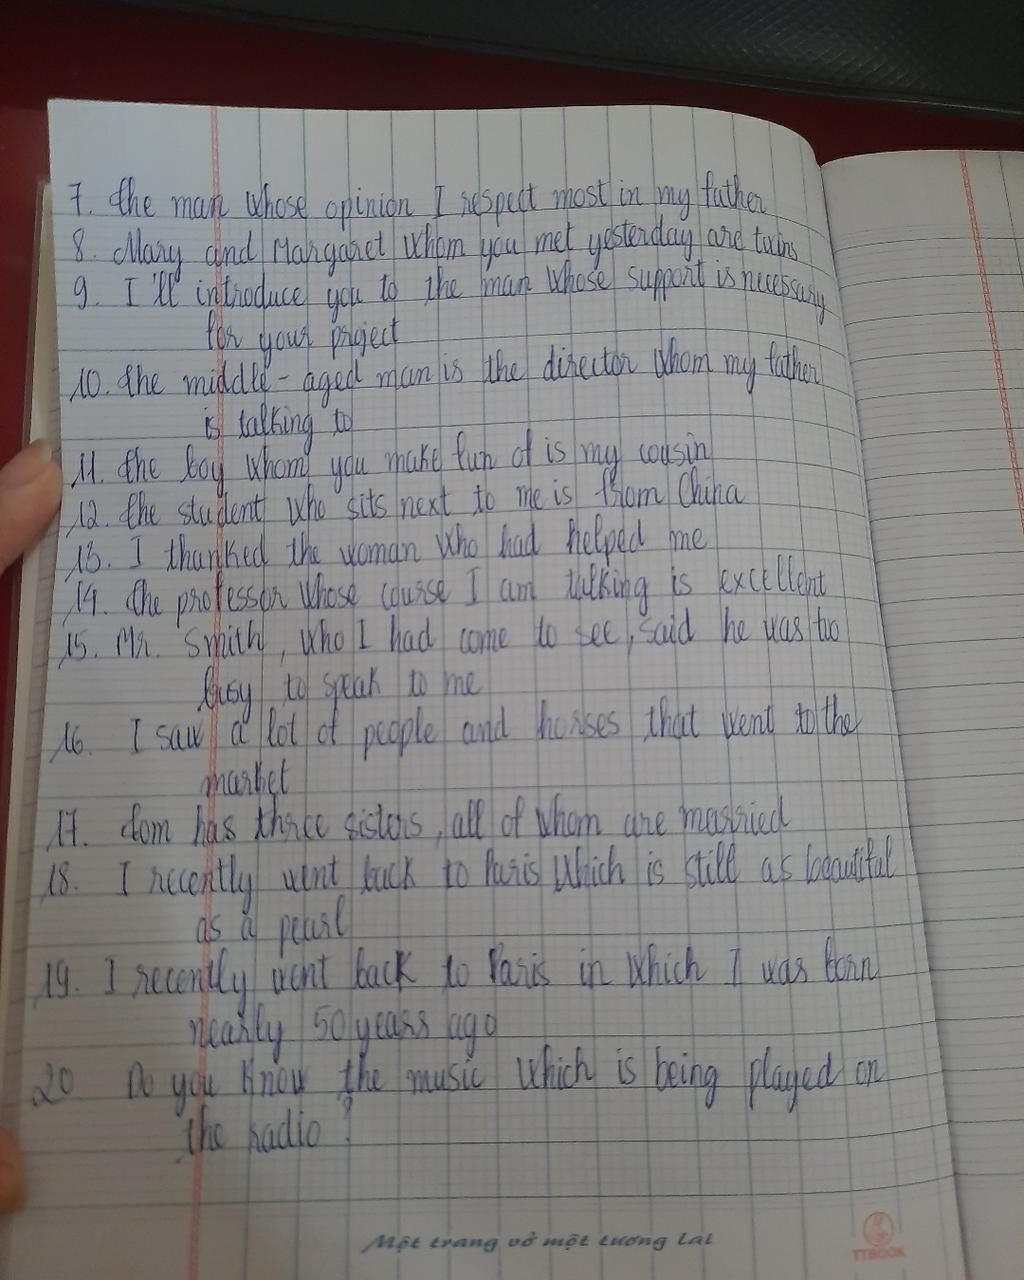 7. the man whose opinion I respect most in my father
8. Mary and Margaret whom you met yesterday are twins
9. I'll introduce you to the man whose support is necessary
for your project
10. the middle-aged man is the director whom my father
is talking to
11. the boy whom you make fun of is my cousin
12. the student who sits next to me is from China
13. I thanked the woman who had helped me
14. the professor whose course I am talking is excellent
15. Mr. Smith, who I had come to see, said he was too
busy to speak to me
16. I saw a lot of people and horses that went to the
market
17. Tom has three sisters, all of whom are married
18. I recently went back to Paris which is still as beautiful
as a pearl
19. I recently went back to Paris in which I was born
nearly 50 years ago
20 Do you know the music which is being played on
the radio?
Một trang vở một tương lai
TTBOOK